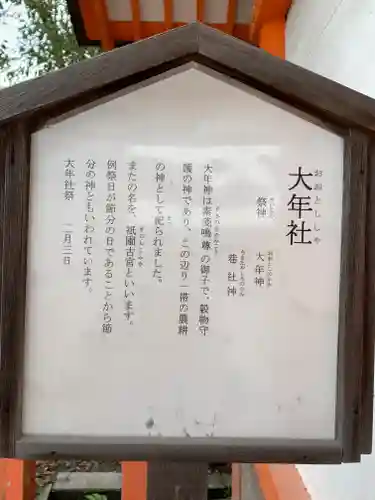 大年社
おおとししゃ
祭神
さいじん
大年神
おおとしのかみ
巷社神
大年神は素戔嗚尊の御子で、穀物守
護の神であり、この辺り一帯の農耕
の神として祀られました。
またの名を、祇園古宮といいます。
例祭日が節分の日であることから節
分の神ともいわれています。
大年社祭　二月三日